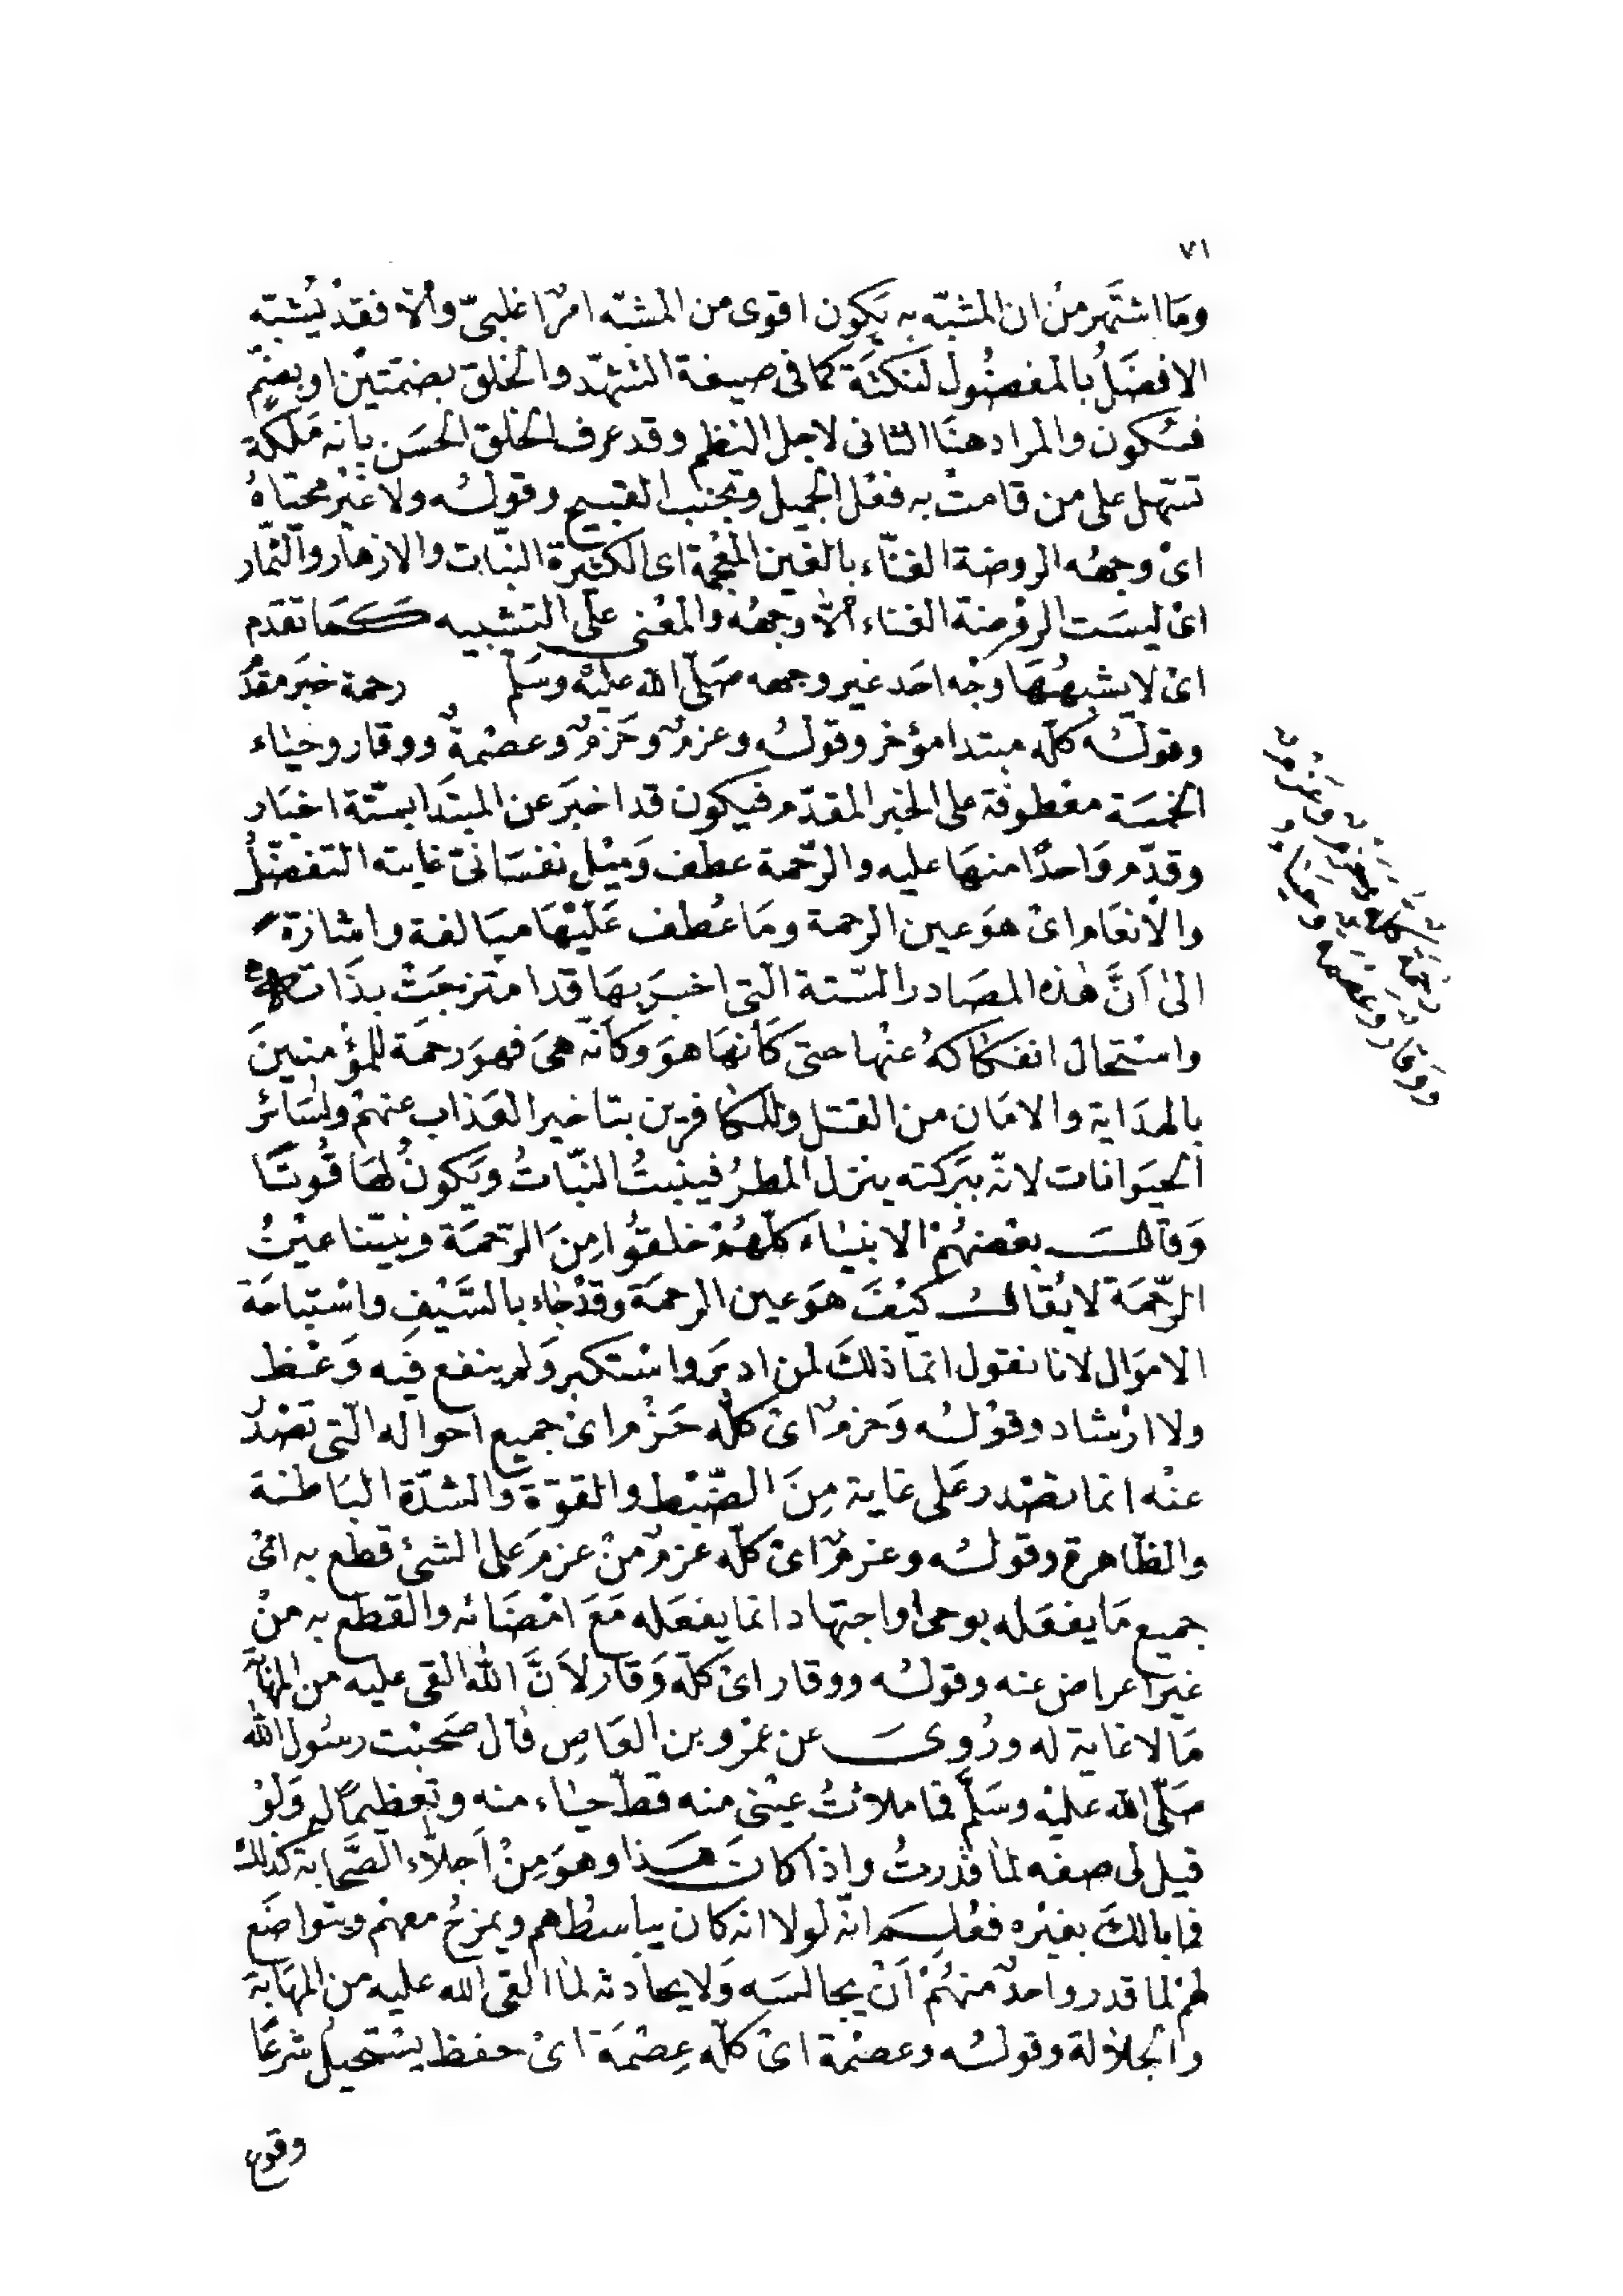 ٧١
ومَا اشتَهر منْ ان المشبّه به يَكون اقوى من المشبّه امرٌ اغلبىّ والّا فقدْ يُشبّه
الافضَلُ بالمفضُول لنكتَة كما فى صيغة التشهّد والخلق بضمّتيْن او بضمٍّ
فسُكون والمراد هنَا الثانى لاجل النظم وقد عرف الخلق الحسَن بانه مَلكة
تسَهل على من قامتْ به فعْل الجميل وتجنب القبيح وقولـُه ولا غيْر محيّاهُ
اىْ وجهُه الروضة الغنّاء بالغين المعْجمة اى الكثيرة النبَات والازهار والثمار
اىْ ليسَت الروْضة الغناء الّا وجههُ والمعْنى على التشبيه كَـمَا تقدّم
اىْ لا يشبههَا وجْه احَد غير وجهه صَلّى الله عليْه وسَلّم رحمة خبَر مقدّ
وقولـُه كلّه مبتدا مؤخر وقولـُه وعزمٌ وحَزمٌ وعصْمةٌ ووقار وحيَاء
الخمسَة معْطوفة على الخبر المقدّم فيكون قد اخبَر عن المبتدَا بستّة اخبَار
وقدّم وَاحدًا منهَا عليه والرّحمة عطف وَميْل نفسَانىّ غايته التفضّلُ
والانعَام اىْ هوَ عين الرحمة ومَا عُطف عَليْهَا مبَالغة واشَارة
الى اَنَّ هٰذه المصَادر السّتة الّتى اخبرَ بهَا قد امتزجَتْ بذَاته
واسْتحال انفكاكهُ عنْها حتى كَانهَا هوَ وَكَانّه هىَ فهوَ رحمَة للمؤمنينَ
بالهدَاية والامَان من القتل وللكافرين بتاخير العَذاب عنهمْ ولسَائر
الحيَوانات لانّه ببَركته ينزل المطرُ فينبتُ النبّاتُ ويَكونُ لهَا قُوتًا
وَقالـَ بعْضهُمْ الانبيَاء كلّهُمْ خلقُوا مِنَ الرّحمَة ونبيّنا عيْنُ
الرّحْمَة لا يُقالـُ كيْفَ هوَ عين الرحمَة وقدْ جَاء بالسَّيْفِ واسْتباحَة
الاموَال لانا نقول انما ذلكَ لمن ادبرَ واسْتكبر وَلم ينفع فيه وَعْظ
ولا ارْشاد وقوْلـُه وَحزمٌ اىْ كلّه حَزْم اىْ جميع احواله الّتى تصْدُ
عنْه انما تصْدر عَلى غاية مِنَ الضّبْط والقوّة والشدّة البَاطنة
والظّاهرة وقولـُه وعزمٌ اىْ كلّه عزمٌ منْ عزمَ عَلى الشئ قطَع به اىْ
جميع مَا يفعَله بوحى او اجتهاد انما يفعَله مَعَ امْضَائه والقطع به منْ
غيْر اعراض عنه وقولـُه ووقار اىْ كلّه وَقار لاَنَّ الله القى عليه من المهَابَة
مَا لا غاية له ورُوِىَ عن عمْرو بن العَاصِ قال صَحبْت رسُول الله
صَلّى الله عليْه وسَلّم فما ملاتُ عيْنى منه قطّ حيَاء منه وتعْظيمًا له وَلوْ
قيل لى صفه لمَا قدرتُ واذا كانَ هـَذا وهوَ مِنْ اَجلّاء الصَّحابة كذلكَ
فما بالكَ بغيْره فعُلمَ انّه لولا انه كان يباسطُهم ويمزحُ معهمْ ويتواضَع
لهمْ لما قدر واحدٌ منهُمْ اَنْ يجالسَه وَلا يحادثه لما القى الله عليه من المهَابَة
والجلالة وقولـُه وعصْمة اىْ كلّه عِصْمَة اىْ حفظ يسْتحيل شرعًا
وقوع
رحمة كله
وحزم وعزم
ووقار وعصمة وحياء